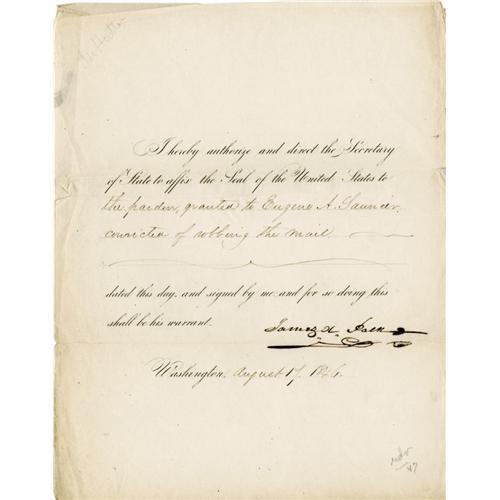 I hereby authorize and direct the Secretary
of State to affix the Seal of the United States to
the pardon, granted to Eugene A. Saunier,
convicted of robbing the mail
dated this day, and signed by me: and for so doing this
shall be his warrant.
James K. Polk
Washington, August 17. 1846.
47